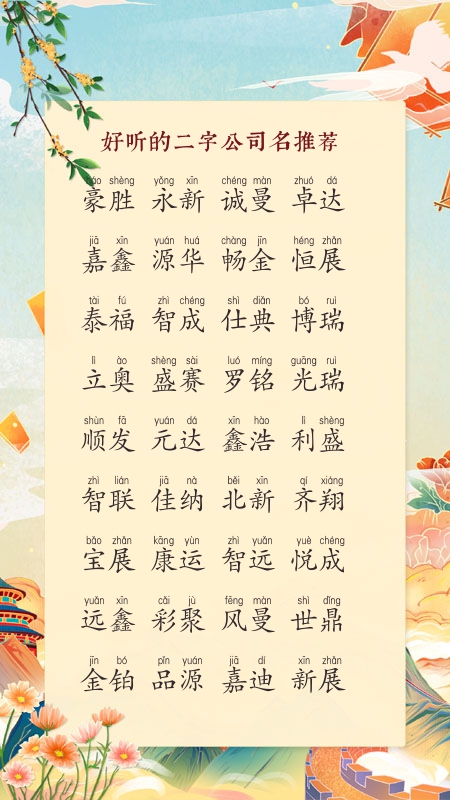 好听的二字公司名推荐
háo shèng yǒng xīn chéng màn zhuó dá
豪胜 永新 诚曼 卓达
jiā xīn yuán huá chàng jīn héng zhǎn
嘉鑫 源华 畅金 恒展
tài fú zhì chéng shì diǎn bó ruì
泰福 智成 仕典 博瑞
lì ào shèng sài luó míng guāng ruì
立奥 盛赛 罗铭 光瑞
shùn fā yuán dá xīn hào lì shèng
顺发 元达 鑫浩 利盛
zhì lián jiā nà běi xīn qí xiáng
智联 佳纳 北新 齐翔
bǎo zhǎn kāng yùn zhì yuǎn yuè chéng
宝展 康运 智远 悦成
yuǎn xīn cǎi jù fēng màn shì dǐng
远鑫 彩聚 风曼 世鼎
jīn bó pǐn yuán jiā dí xīn zhǎn
金铂 品源 嘉迪 新展